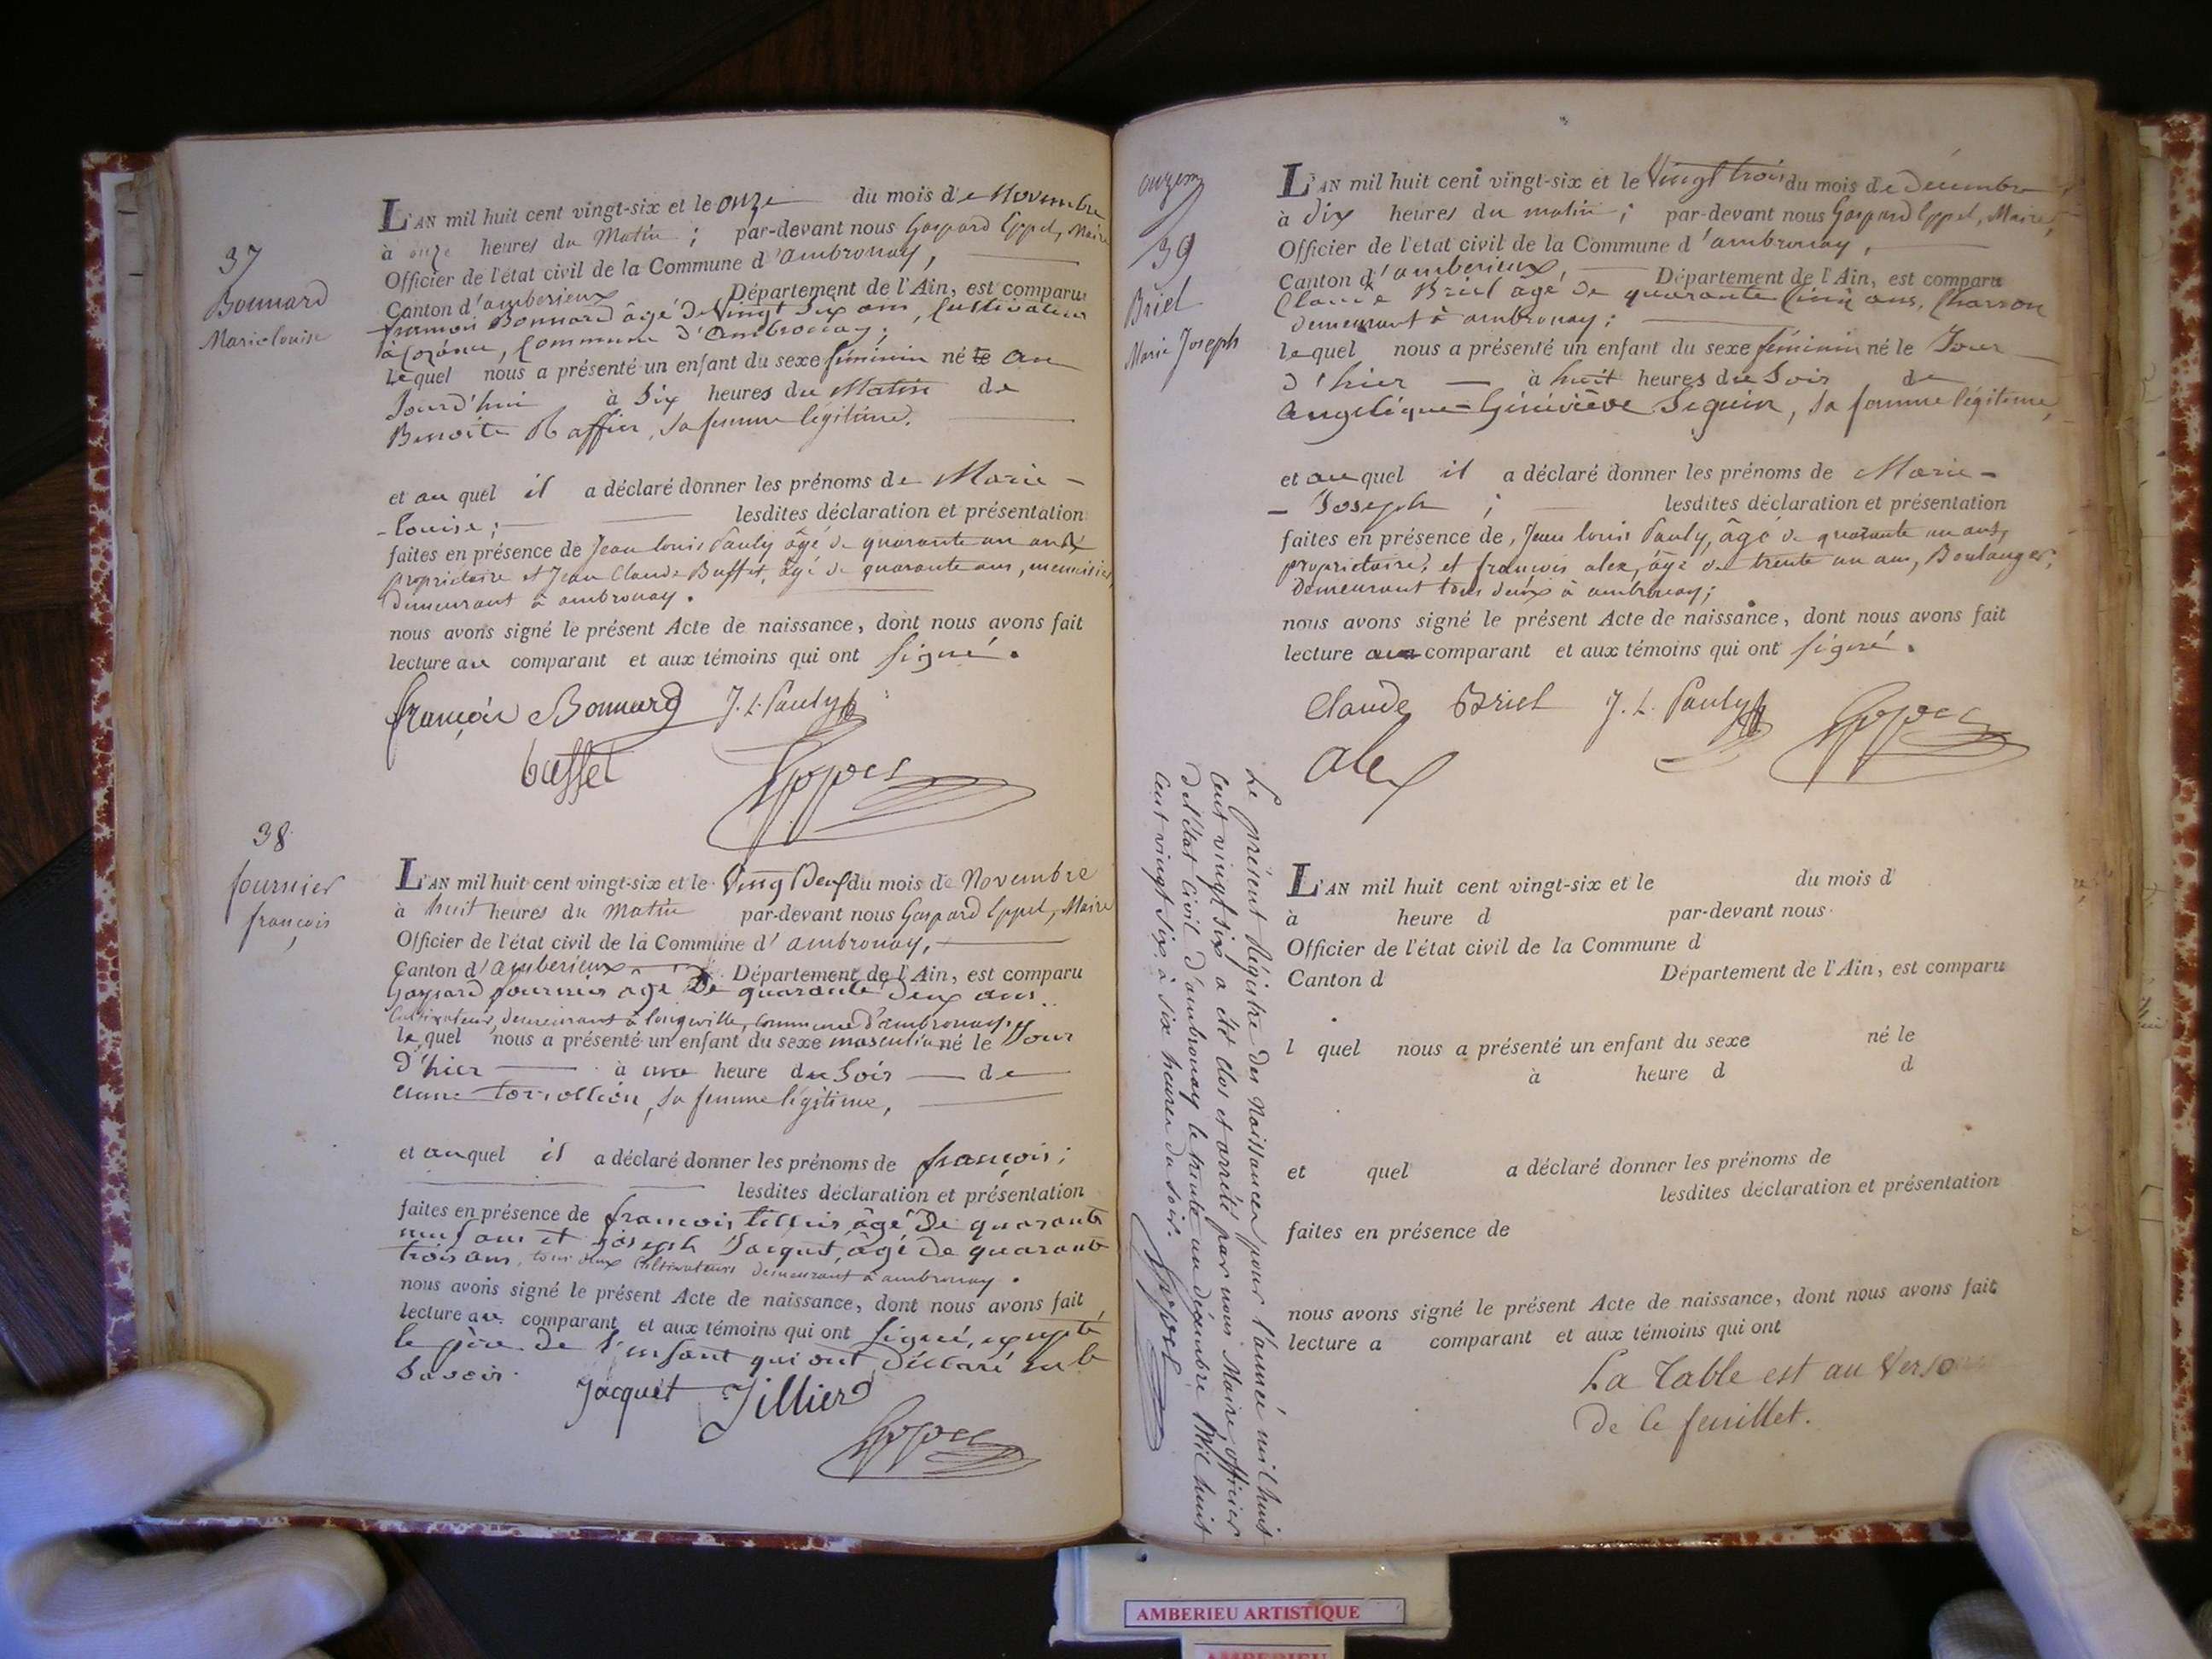 37
Bonnard
Marie louise
L'AN mil huit cent vingt-six et le onze du mois de Novembre
à onze heures du Matin ; par-devant nous Gaspard Eppel, Maire
Officier de l'état civil de la Commune d'ambronay,
Canton d'amberieux Département de l'Ain, est comparu
françois Bonnard âgé de Vingt Six ans, Cultivateur
à Commune d'Ambronay ;
lequel nous a présenté un enfant du sexe féminin né le au
Jourd'hui à Six heures du Matin de
Benoite Raffin, sa femme légitime.
et au quel il a déclaré donner les prénoms de Marie -
- louise ; lesdites déclaration et présentation
faites en présence de Jean louis Pauly âgé de quarante un ans
propriétaire et Jean Claude Buffet, âgé de quarante ans, menuisier
demeurant à ambronay.
nous avons signé le présent Acte de naissance, dont nous avons fait
lecture au comparant et aux témoins qui ont signé.
françois Bonnard J. L. Pauly
buffet Eppel
38
fournier
françois
L'AN mil huit cent vingt-six et le Vingt Deux du mois de Novembre
à huit heures du Matin par-devant nous Gaspard Eppel, Maire
Officier de l'état civil de la Commune d'ambronay,
Canton d'amberieux Département de l'Ain, est comparu
Gaspard fournier âgé De quarante Deux ans
Cultivateur, demeurant à longeville, Commune d'ambronay,
lequel nous a présenté un enfant du sexe masculin né le Jour
D'hier à une heure du Soir de
anne , sa femme légitime,
et au quel il a déclaré donner les prénoms de françois ;
lesdites déclaration et présentation
faites en présence de françois tillier, âgé De quarante
neuf ans et joseph Jacquet, âgé de quarante
trois ans, tous deux Cultivateurs demeurant à ambronay.
nous avons signé le présent Acte de naissance, dont nous avons fait
lecture au comparant et aux témoins qui ont signé, excepté
le père de l'enfant qui ont déclaré ne le
Savoir.
Jacquet Tillier
Eppel
onzem
39
Briel
Marie Joseph
L'AN mil huit cent vingt-six et le Vingt trois du mois de Décembre
à dix heures du matin ; par-devant nous Gaspard Eppel, Maire,
Officier de l'état civil de la Commune d'ambronay,
Canton d'amberieux, Département de l'Ain, est comparu
Claude Briel âgé de quarante Cinq ans, Charron
demeurant à ambronay ;
lequel nous a présenté un enfant du sexe féminin né le Jour
d'hier à huit heures du Soir de
Angélique-Géneviève Seguin, sa femme légitime,
et au quel il a déclaré donner les prénoms de Marie -
- Joseph ; lesdites déclaration et présentation
faites en présence de, Jean louis Pauly, âgé de quarante un ans,
propriétaire, et françois alex, âgé de trente un ans, Boulanger,
demeurant tous deux à ambronay ;
nous avons signé le présent Acte de naissance, dont nous avons fait
lecture au comparant et aux témoins qui ont signé.
Claude Briel J. L. Pauly Eppel
alex
Le présent Régistre des Naissances pour l'année mil huit
Cent vingt six a été clos et arrêté par nous Maire, officier
de l'état Civil d'ambronay le trente un décembre Mil huit
Cent vingt six à six heures du soir. Eppel
L'AN mil huit cent vingt-six et le du mois d
à heure d par-devant nous
Officier de l'état civil de la Commune d
Canton d Département de l'Ain, est comparu
l quel nous a présenté un enfant du sexe né le
à heure d d
et quel a déclaré donner les prénoms de
lesdites déclaration et présentation
faites en présence de
nous avons signé le présent Acte de naissance, dont nous avons fait
lecture a comparant et aux témoins qui ont
La Table est au Verso
de ce feuillet.
AMBERIEU ARTISTIQUE
AMBERIEU